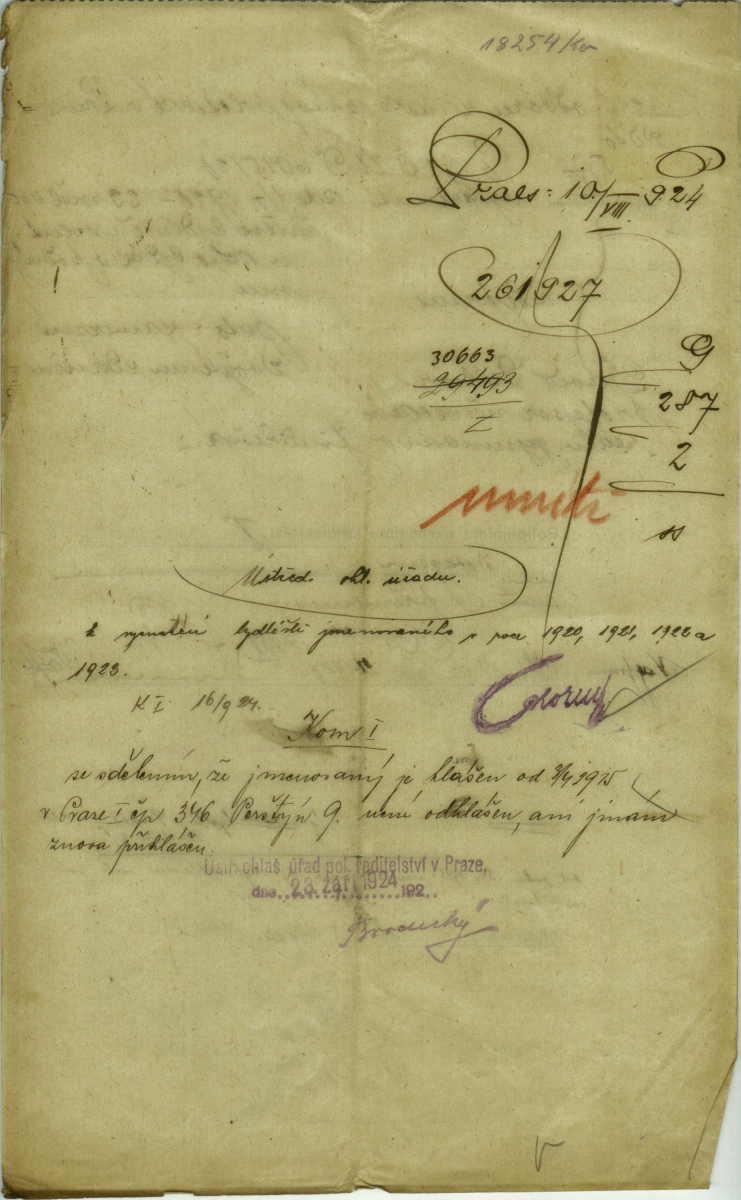 18254/
Praes: 10./VIII 924
261927
30663
29493
I
G
287
2
Ústřed. ohl. úřadu.
k vyznačení bydliště jmenovaného v roce 1920, 1921, 1922 a
1923.
K I. 16/9 24.
Kom I
se sdělením, že jmenovaný je hlášen od 1915
v Praze I čp 346 Perštýn 9. není odhlášen, ani jinam
znova přihlášen.
Ústř. ohlaš. úřad pol. ředitelství v Praze,
dne 23. září 1924 192